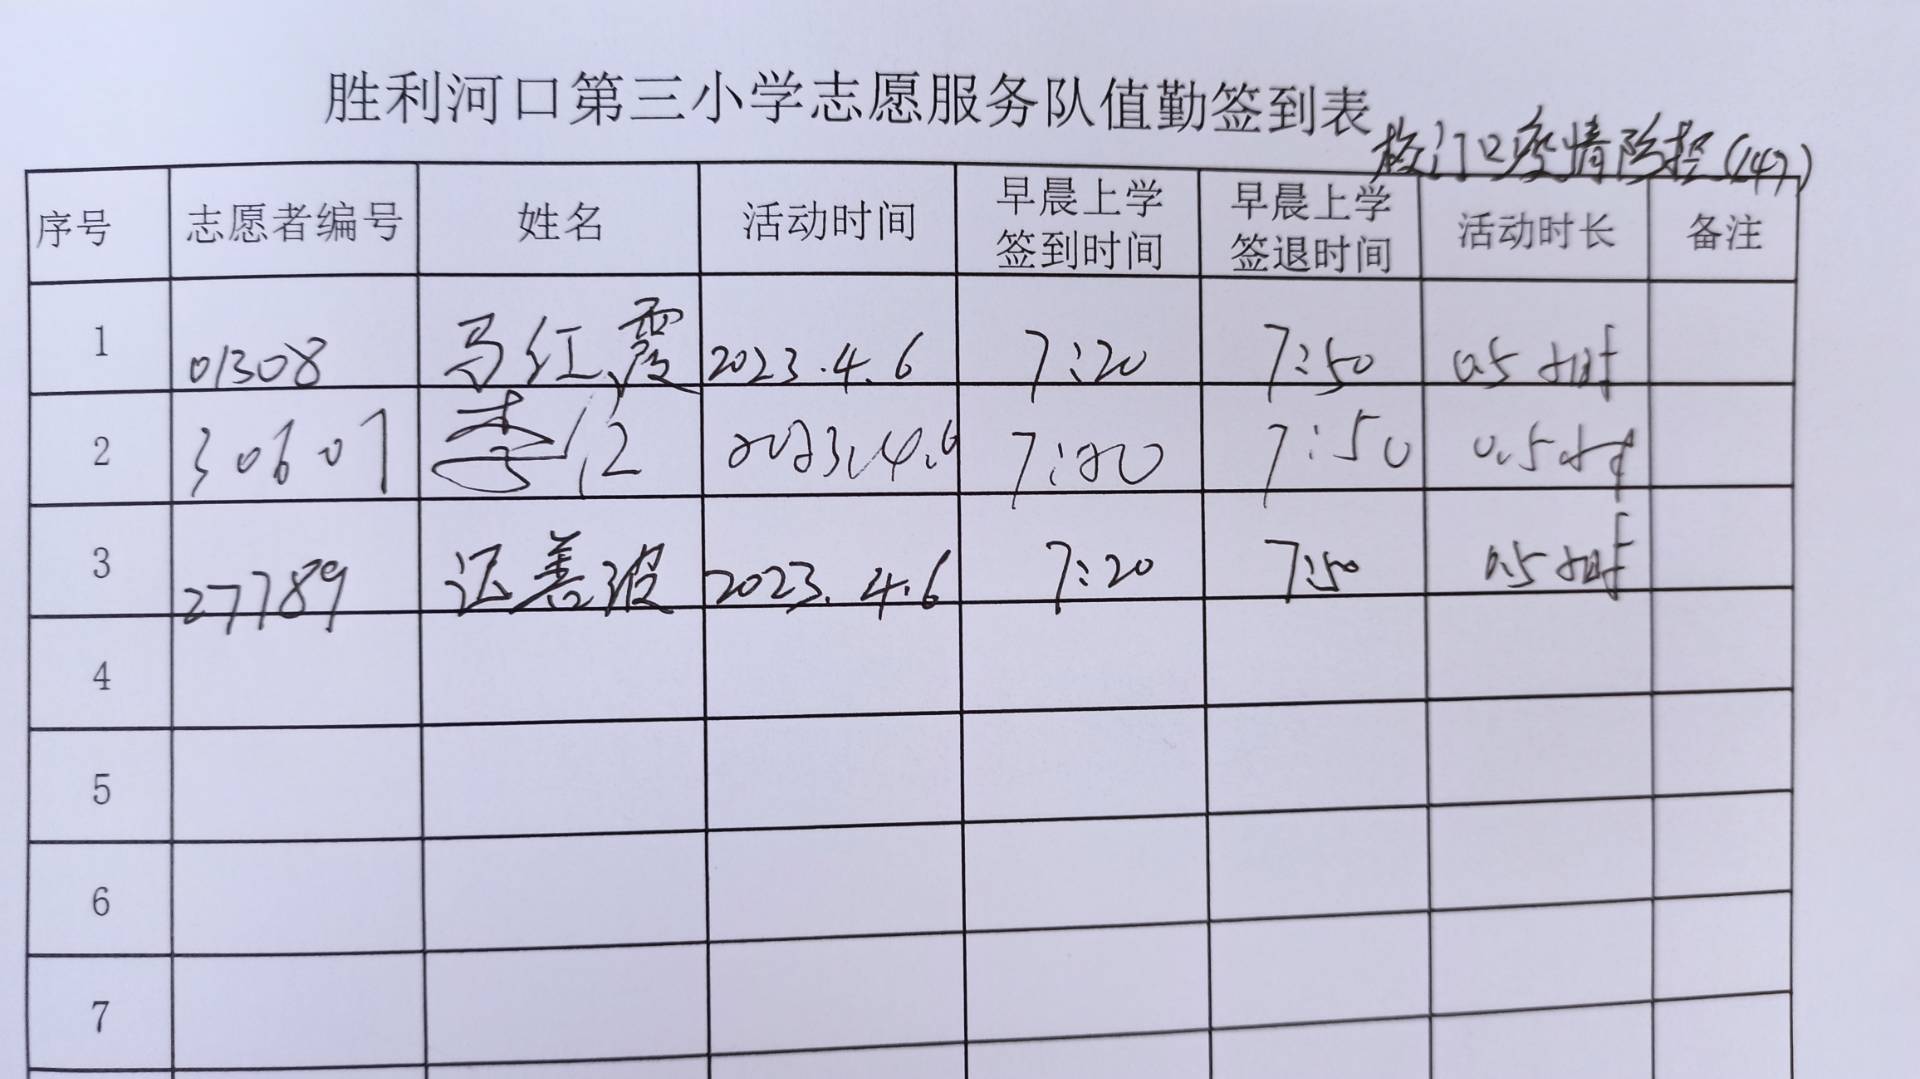 胜利河口第三小学志愿服务队值勤签到表
校门口疫情防控(147)
序号 志愿者编号 姓名 活动时间 早晨上学签到时间 早晨上学签退时间 活动时长 备注
1 01308 马红霞 2023.4.6 7:20 7:50 0.5小时
2 30607 李仁 2023.4.6 7:20 7:50 0.5小时
3 27789 善波 2023.4.6 7:20 7:50 0.5小时
4
5
6
7